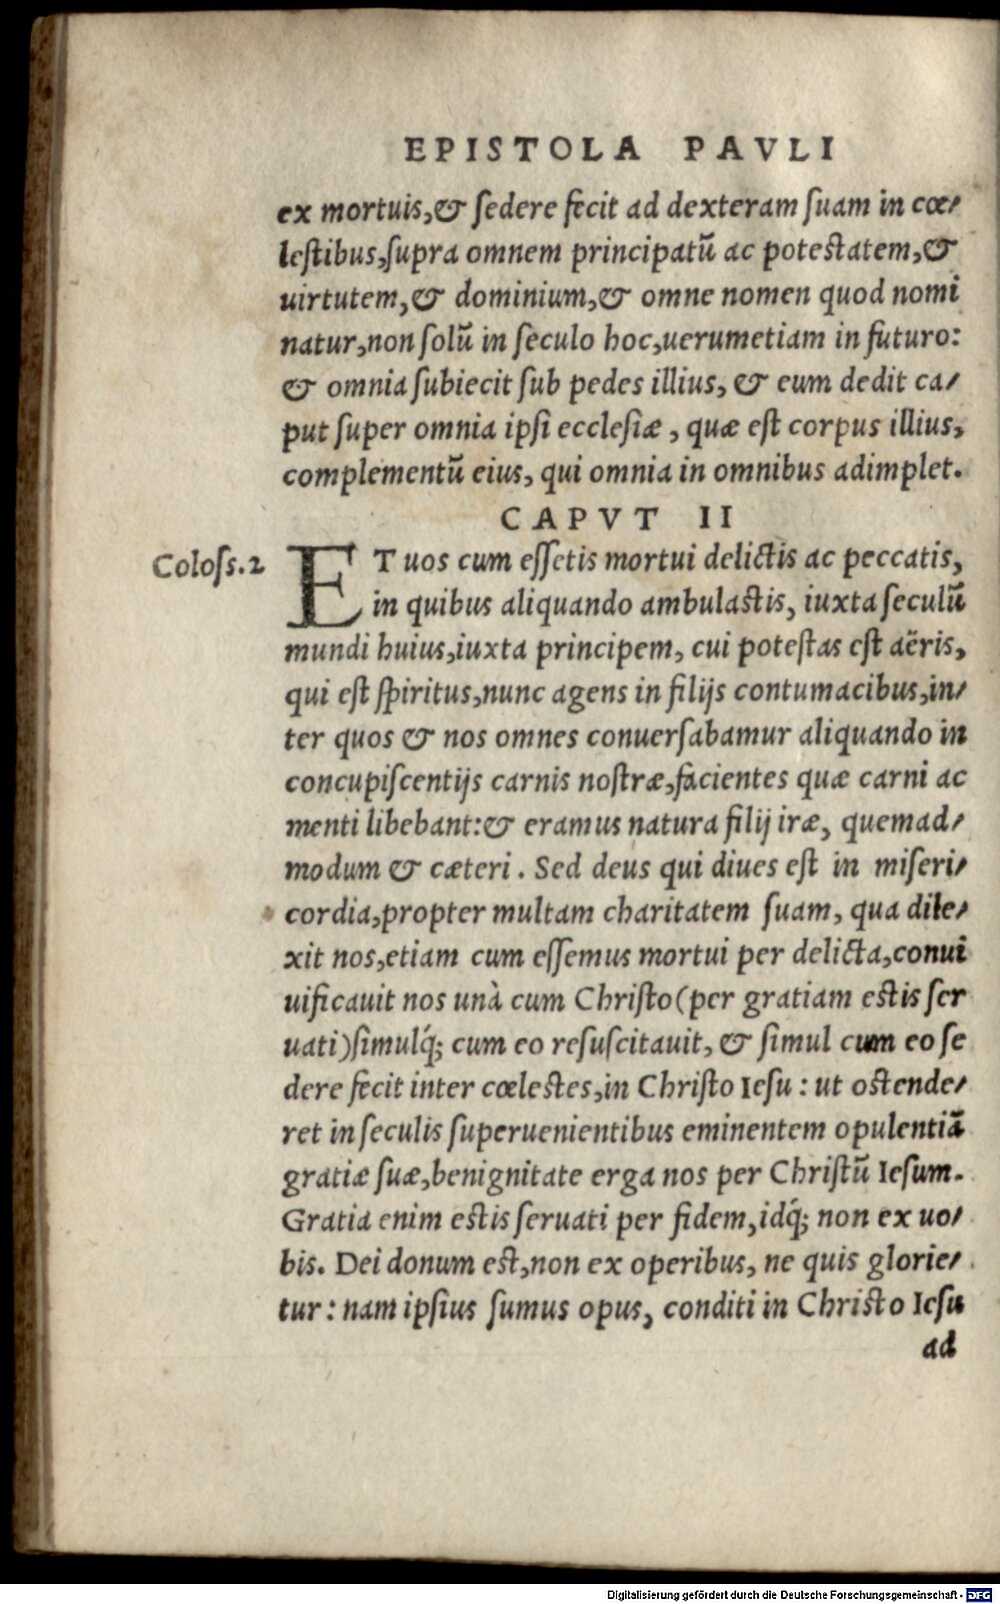 EPISTOLA PAVLI
ex mortuis,& ſedere fecit ad dexteram ſuam in cœ⸗
leſtibus,ſupra omnem principatū ac poteſtatem,&
uirtutem,& dominium,& omne nomen quod nomi
natur,non ſolū in ſeculo hoc,uerumetiam in futuro:
& omnia ſubiecit ſub pedes illius, & eum dedit ca⸗
put ſuper omnia ipſi eccleſiæ , quæ eſt corpus illius,
complementū eius, qui omnia in omnibus adimplet.
CAPVT II
Coloſs.2
ET uos cum eſſetis mortui delictis ac peccatis,
in quibus aliquando ambulaſtis, iuxta ſeculū
mundi huius,iuxta principem, cui poteſtas eſt aëris,
qui eſt ſpiritus,nunc agens in filijs contumacibus,in⸗
ter quos & nos omnes conuerſabamur aliquando in
concupiſcentijs carnis noſtræ,facientes quæ carni ac
menti libebant:& eramus natura filij iræ, quemad⸗
modum & cæteri . Sed deus qui diues eſt in miſeri⸗
cordia,propter multam charitatem ſuam, qua dile⸗
xit nos,etiam cum eſſemus mortui per delicta,conui
uificauit nos unà cum Chriſto(per gratiam eſtis ſer
uati)ſimulq́; cum eo reſuſcitauit, & ſimul cum eo ſe
dere fecit inter cœleſtes,in Chriſto Ieſu : ut oſtende⸗
ret in ſeculis ſuperuenientibus eminentem opulentiā
gratiæ ſuæ,benignitate erga nos per Chriſtū Ieſum.
Gratia enim eſtis ſeruati per fidem,idq́; non ex uo⸗
bis. Dei donum eſt,non ex operibus, ne quis glorie⸗
tur : nam ipſius ſumus opus, conditi in Chriſto Ieſu
ad
Digitalisierung gefördert durch die Deutsche Forschungsgemeinschaft - DFG